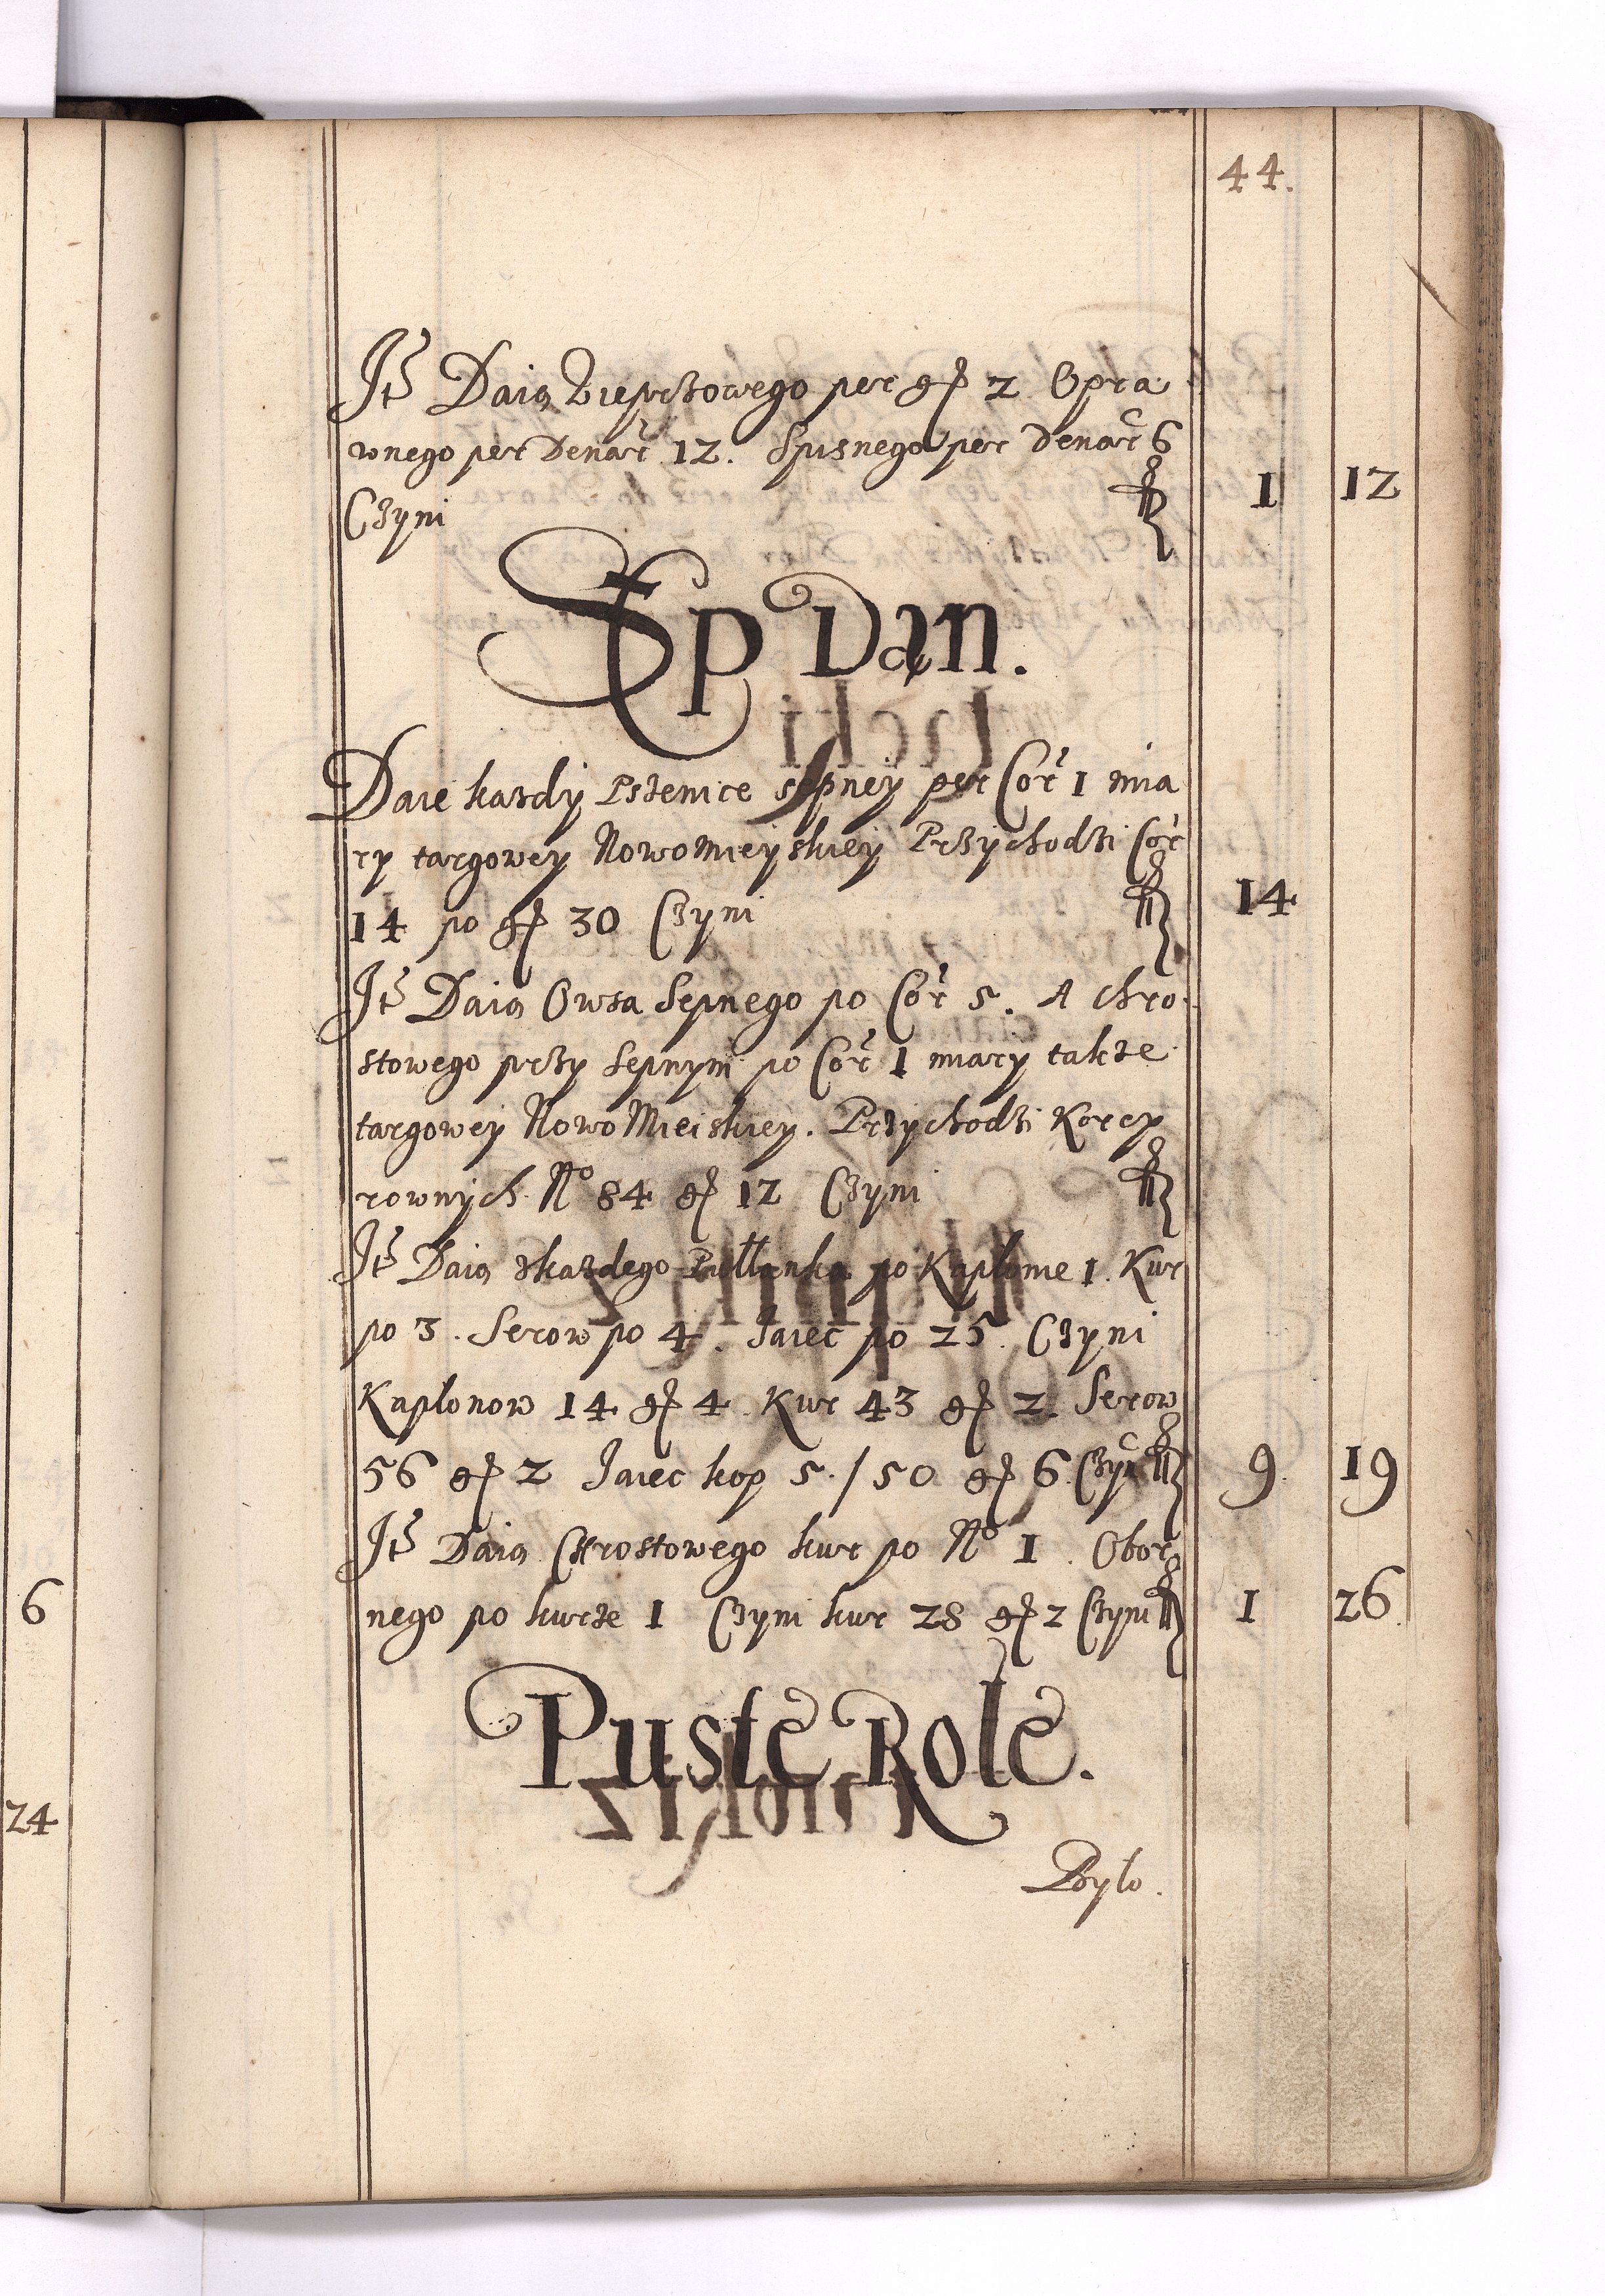 44.
Jtē Daią Wieprzowego per gɼ 2 Opra
wnego per Denar 12. Spisnego per denar 6
Czyni f 1 12
Sęp Dań.
Daie kazdy Pszenice sepney per Cor 1 mia
ry targowey NowoMieyskiey Przychodzi Cor
14 po gɼ 30 Czyni f 14
Jtē Daią Owsa Sepnego po Cor 5. A chro
stowego przy Sepnym po Cor 1 miary takze
targowey NowoMieiskiey. Przychodzi Korcy
rownych No 84 gɼ 12 Czyni f
Jtē Daią zkazdego Pułłanka po Kapłonie 1. Kur
po 3. Serow po 4. Jaiec po 25. Czyni
Kapłonow 14 gɼ 4. Kur 43 gɼ 2. Serow
56 gɼ 2 Jaiec kop 5./50 gɼ 6 Czyni f 9. 19
Jtē Daią Chrostowego kur po No 1. Obor
nego po kurze 1 Czyni kur 28 gɼ 2 Czyni f 1 26.
Puste Role.
Było.
6
24